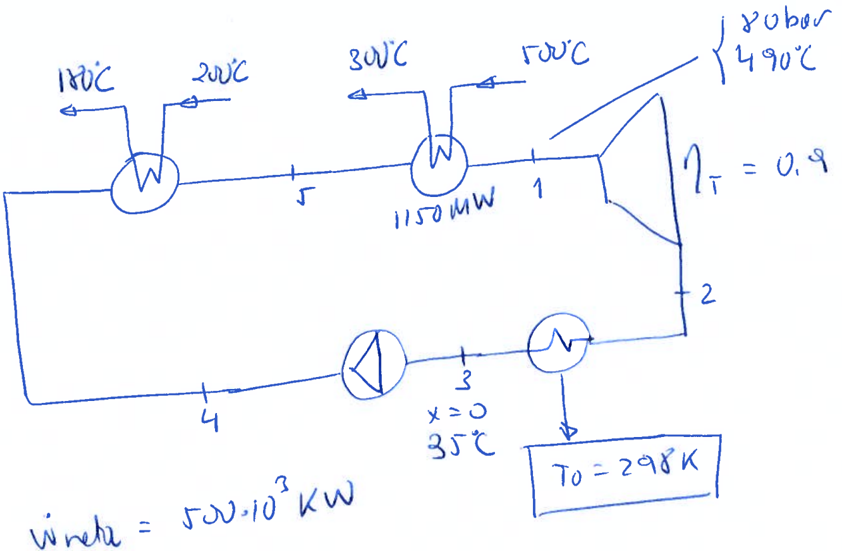 180°C
200°C
300°C
500°C
80bar
490°C
5
1150 MW
1
ηT = 0.9
2
3
x=0
35°C
4
T0 = 298K
ẇneta = 500.10³ KW